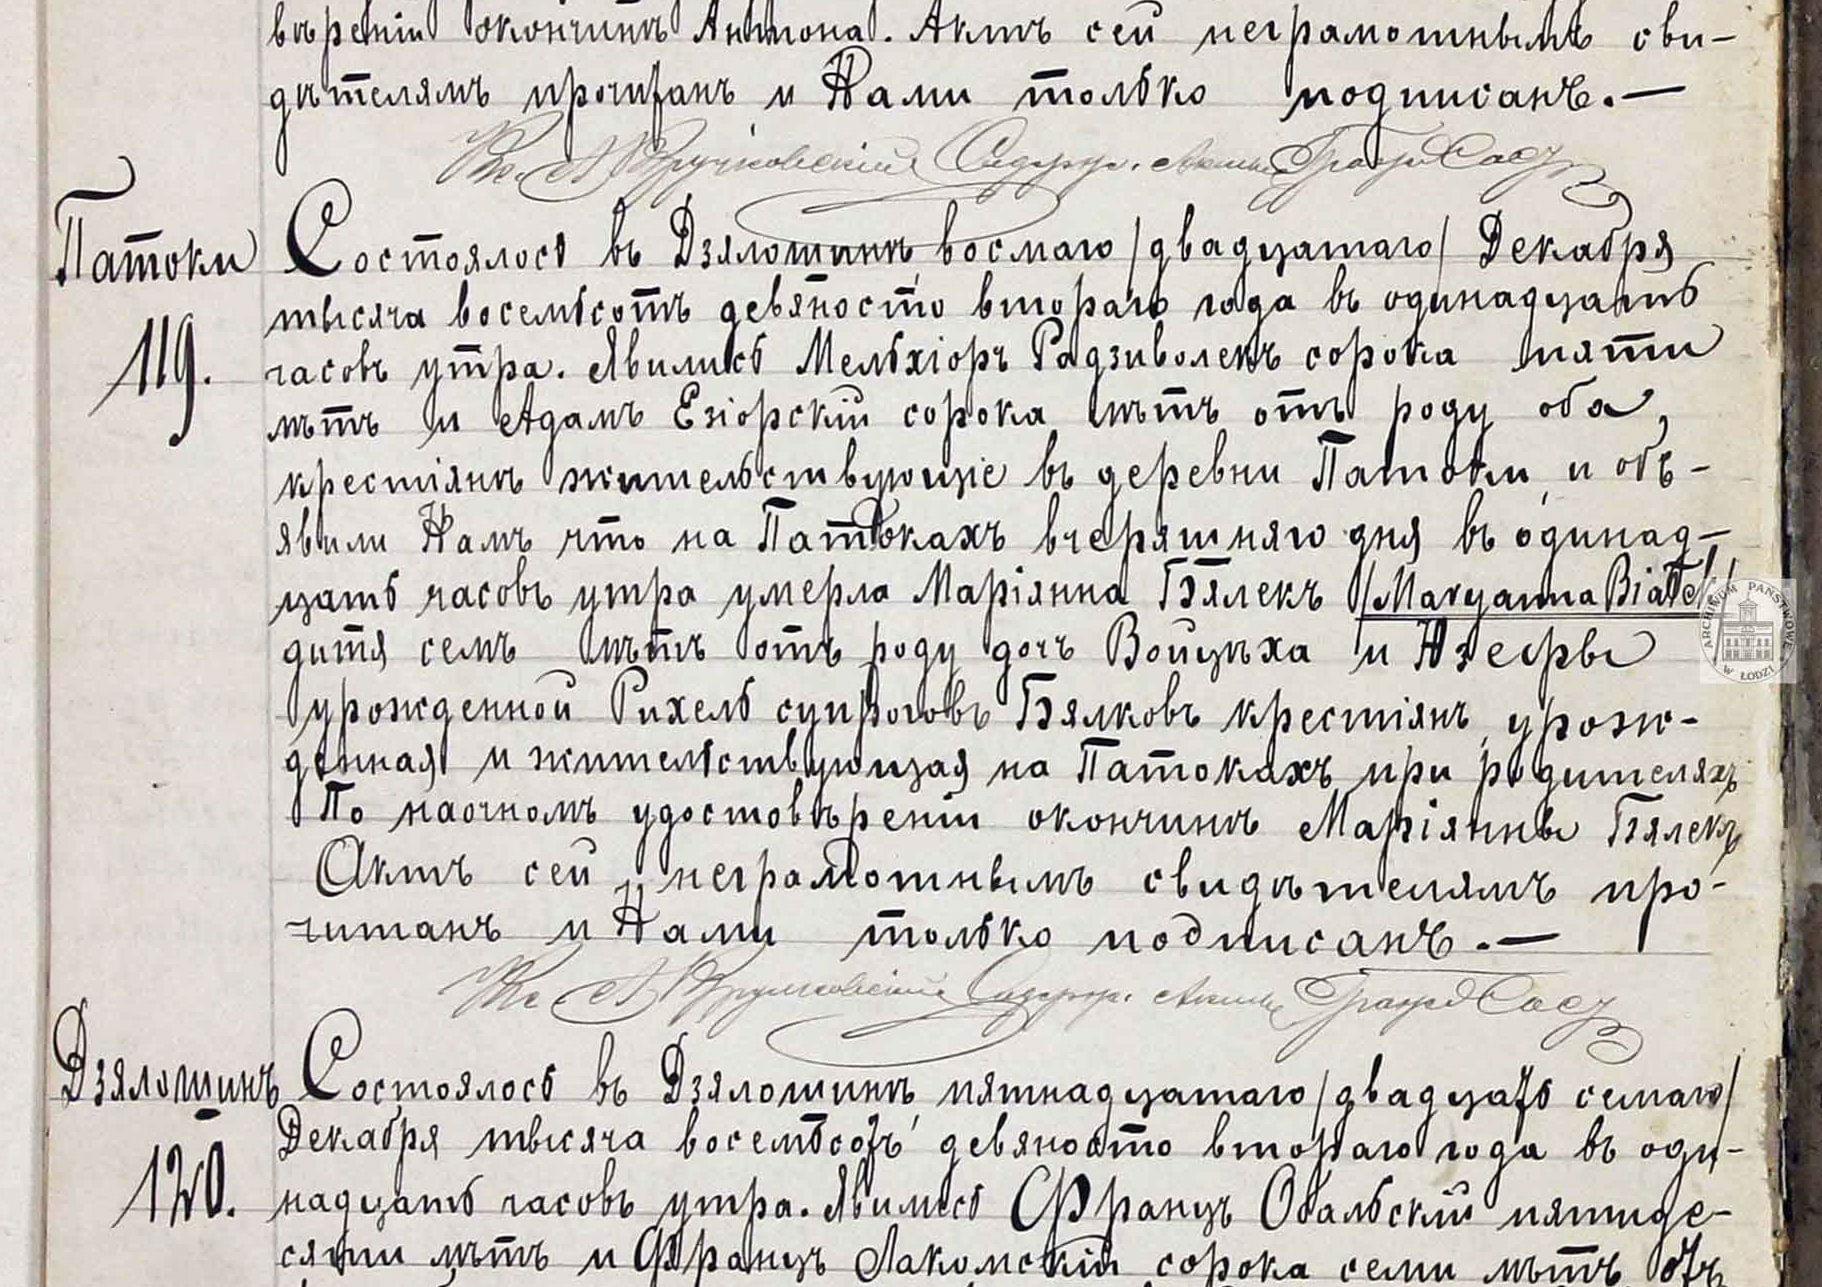 вѣреніи окончинѣ Антона. Актъ сей неграмотнымъ сви-
дѣтелямъ прочитанъ и Нами только подписанъ.—
Патоки
119.
Состоялось въ Дзялошинѣ восмаго /двадцатаго/ Декабря
тысяча восемьсотъ девяносто втораго года въ одинадцать
часовъ утра. Явились Мельхіоръ Радзиволекъ сорока пяти
лѣтъ и Адамъ Езіорскій сорока лѣтъ отъ роду оба,
крестіянѣ жительствующіе въ деревни Патоки и объ-
явили Намъ что на Патокахъ вчеряшняго дня въ одинад-
цать часовъ утра умерла Маріянна Бялекъ /Maryanna Białek/
дитя семъ лѣтъ отъ роду дочъ Войцѣха и Юзефы
урожденной Рихель супроговъ Бялковъ крестіянъ, урож-
денная и жительствующая на Патокахъ при родителяхъ
По наочномъ удостовѣреніи окончинѣ Маріянны Бялекъ
Актъ сей неграмотнымъ свидѣтелямъ про-
читанъ и Нами только подписанъ.—
Дзялошинъ
120.
Состоялось въ Дзялошинѣ пятнадцатаго /двадцать семаго/
Декабря тысяча восемьсотъ девяносто втораго года въ оди-
надцать часовъ утра. Явились Францъ Обальскій пятиде-
сяти лѣтъ и Францъ Лакомскій сорока семи лѣтъ отъ
ARCHIWUM PAŃSTWOWE W ŁODZI